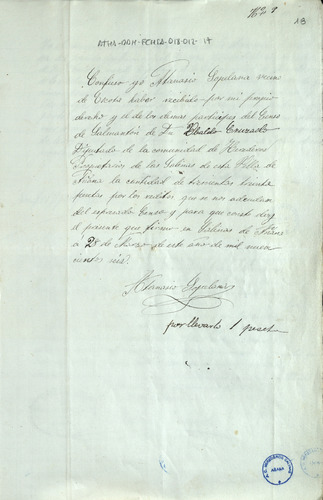 Nº 1
13
ATHA-DAH-FCHSA-018-013-17
Confieso yo Atanasio Sopelana vecino
de haber recibido por mi propio
derecho y el de los demas participes del Censo
de D. Ubaldo Conzado
Diputado de la comunidad de Herederos
Propietarios de las Salinas de esta Villa de
Añana la cantidad de trescientas treinta
pesetas por los reditos que se nos adeudan
del espresado Censo y para que conste doy
el presente que firmo en Salinas de Añana
a 28 de Marzo de este año de mil nueve
cientos seis.
Atanasio Sopelana
por llevarlo 1 peset
ARABA